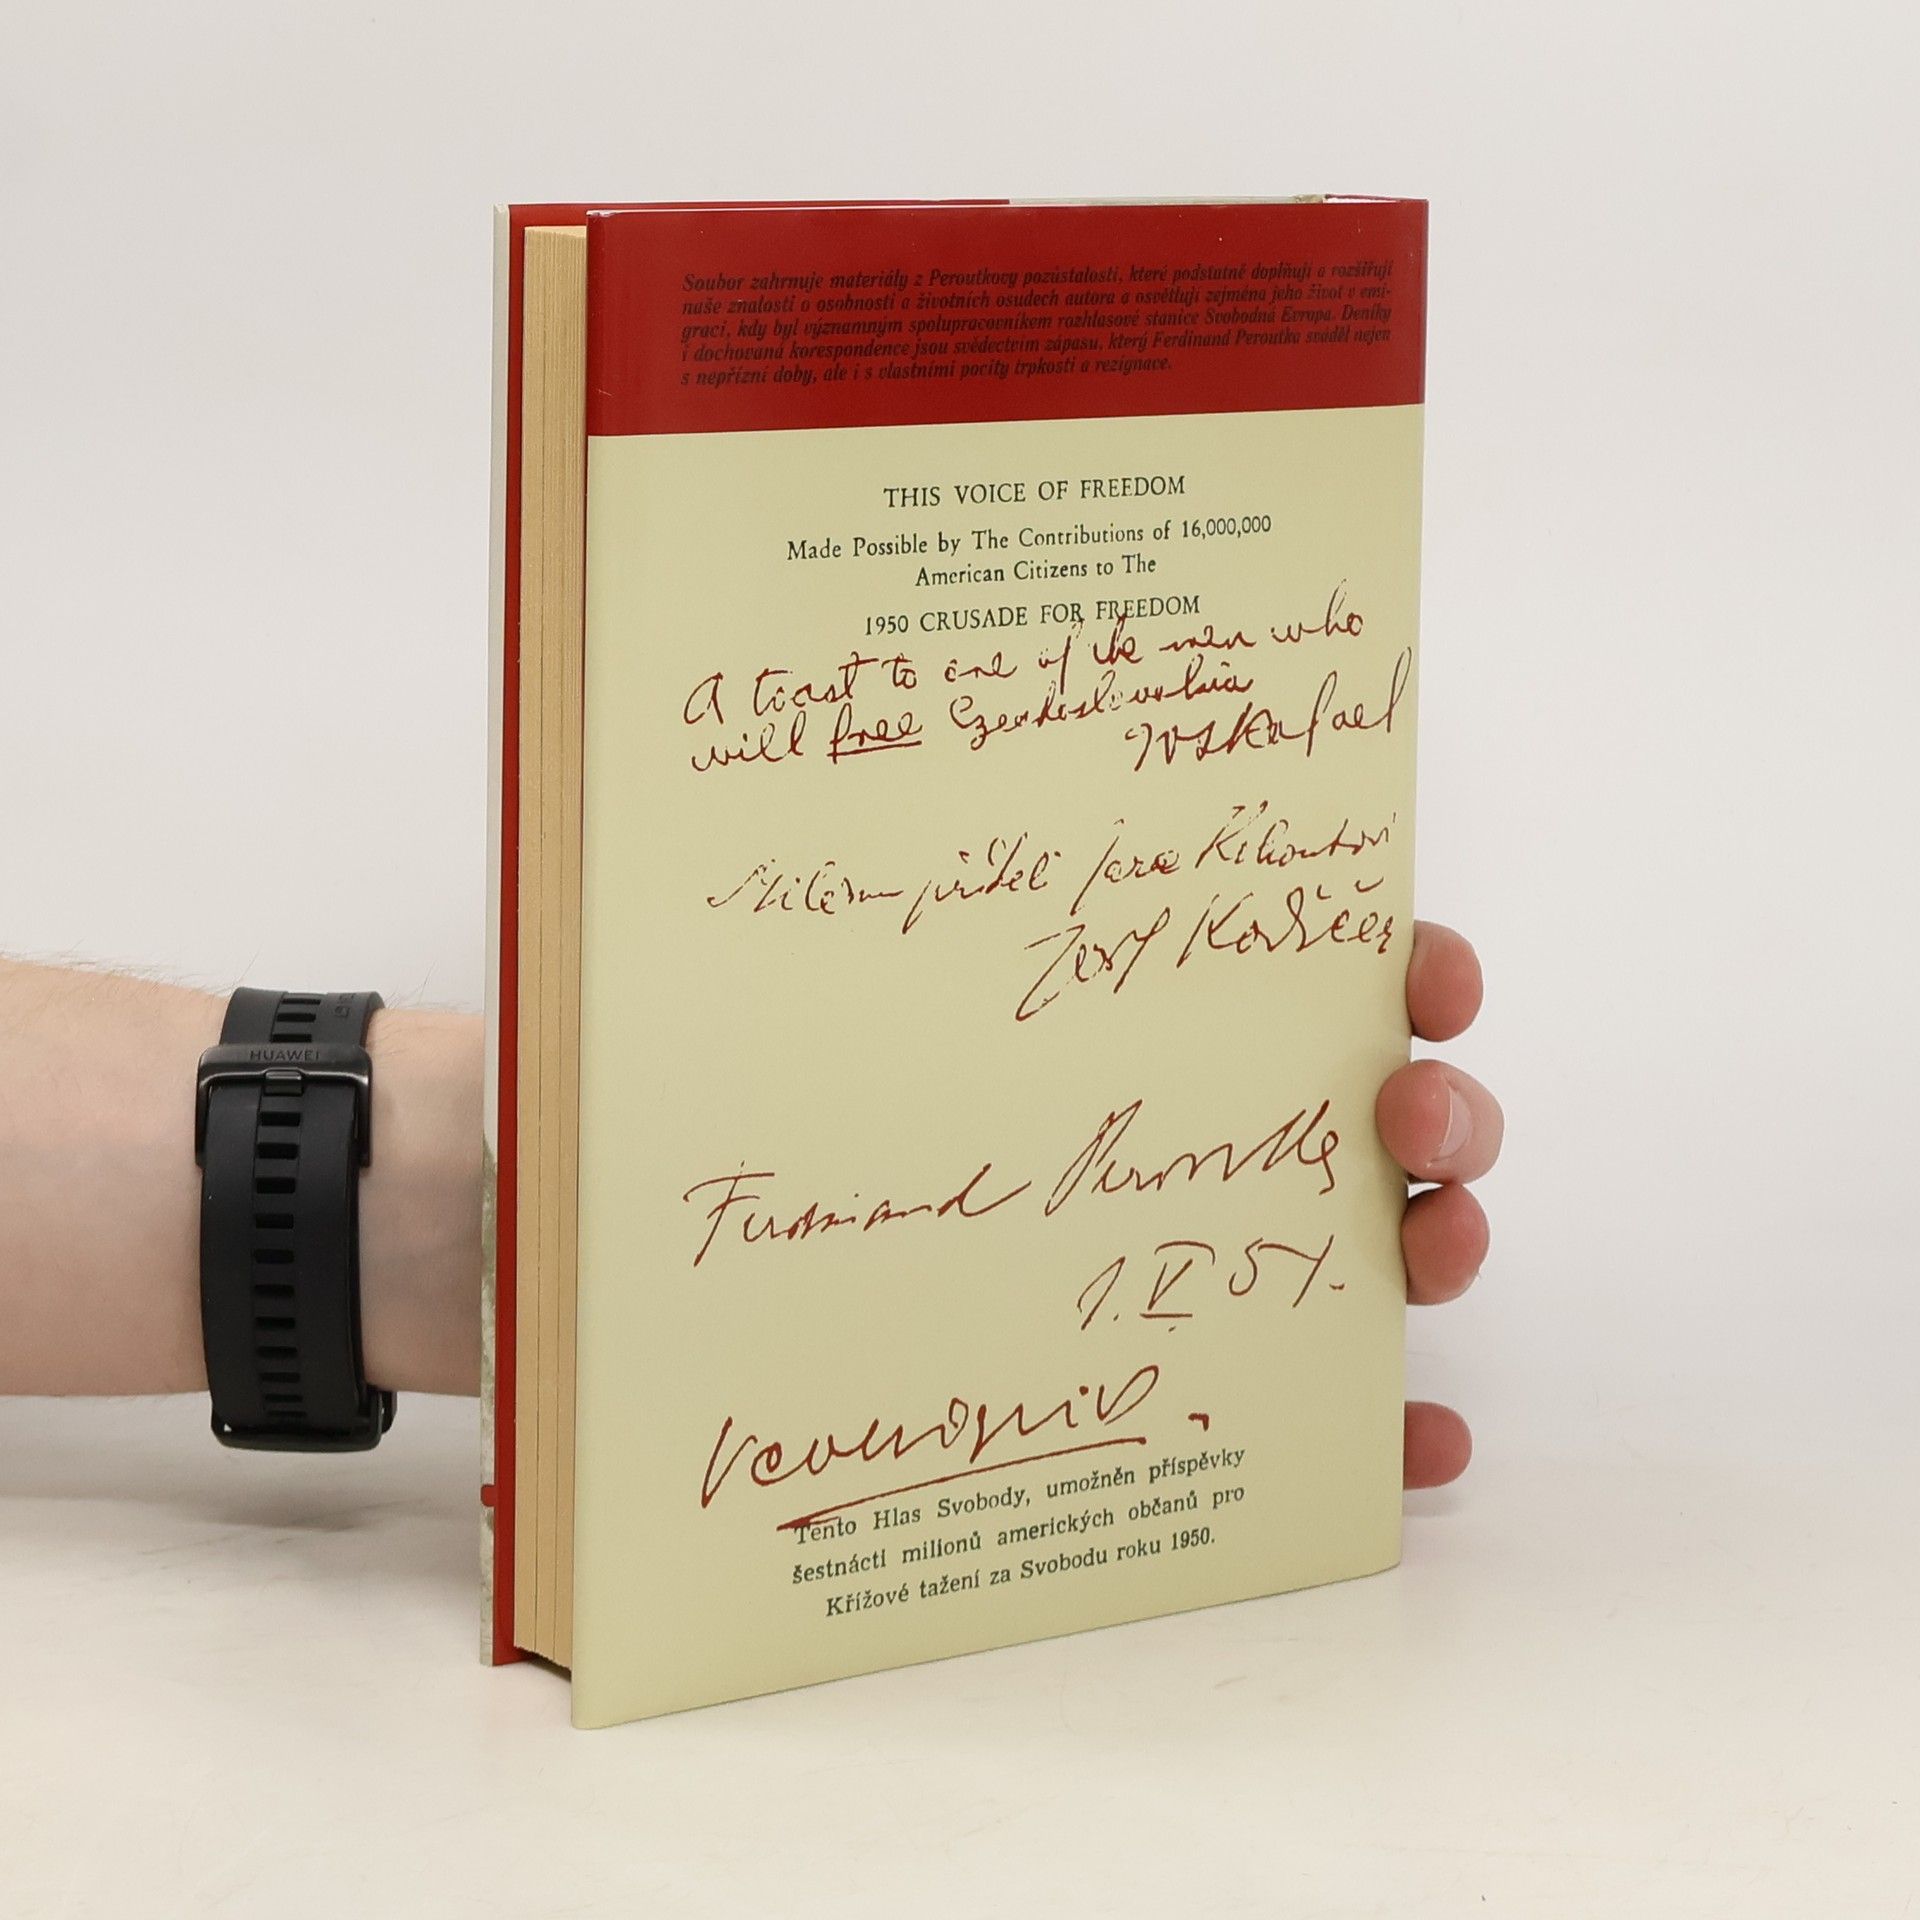 Soubor zahrnuje materiály z Peroutkovy pozůstalosti, které podstatně doplňují a rozšiřují
naše znalosti o osobnosti a životních osudech autora a osvětlují zejména jeho život v emi-
graci, kdy byl významným spolupracovníkem rozhlasové stanice Svobodná Evropa. Deníky
i dochovaná korespondence jsou svědectvím zápasu, který Ferdinand Peroutka sváděl nejen
s nepřízní doby, ale i s vlastními pocity trpkosti a rezignace.
THIS VOICE OF FREEDOM
Made Possible by The Contributions of 16,000,000
American Citizens to The
1950 CRUSADE FOR FREEDOM
A toast to one of the men who
will free Czechoslovakia
Milému příteli Jara Kohoutovi
Josef Kodíček
Ferdinand Peroutka
1. V 51.
Tento Hlas Svobody, umožněn příspěvky
šestnácti milionů amerických občanů pro
Křížové tažení za Svobodu roku 1950.
HUAWEI